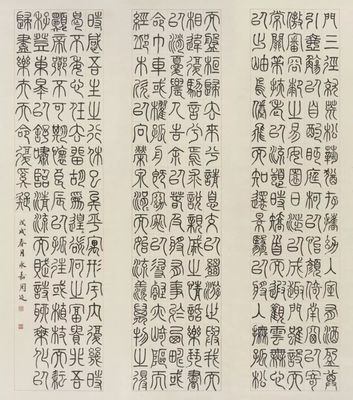 門三徑就荒松菊猶存攜幼入室有酒盈尊
引壺觴以自酌眄庭柯以怡顏倚南窗以寄
傲審容膝之易安園日涉以成趣門雖設而
常關策扶老以流憩時矯首而遐觀雲無心
以出岫鳥倦飛而知還景翳翳以將入撫孤松
而盤桓歸去來兮請息交以絕遊世與我而
相違復駕言兮焉求悅親戚之情話樂琴書
以消憂農人告余以春及將有事於西疇或
命巾車或棹孤舟既窈窕以尋壑亦崎嶇而
經丘木欣欣以向榮泉涓涓而始流善萬物之得
時感吾生之行休已矣乎寓形宇內復幾時
曷不委心任去留胡爲遑遑欲何之富貴非吾
願帝鄉不可期懷良辰以孤往或植杖而耘
耔登東皋以舒嘯臨清流而賦詩聊乘化以
歸盡樂夫天命復奚疑
戊戌春月永嘉周延